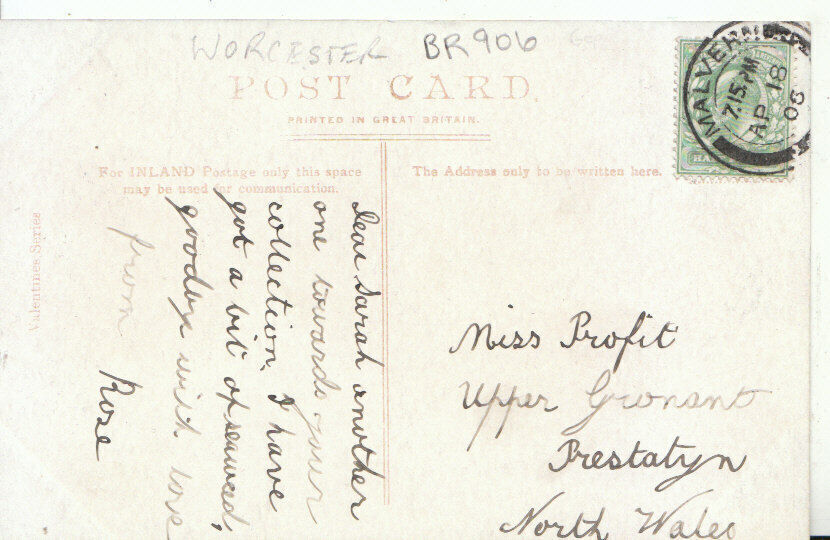 WORCESTER BR906
POST CARD.
PRINTED IN GREAT BRITAIN.
For INLAND Postage only this space
may be used for communication.
The Address only to be written here.
MALVERN
7.15.PM
AP 18
06
Valentines Series
Dear Sarah another
one towards your
collection, I have
got a bit of seaweed,
goodbye with love
from Rose
Miss Profit
Upper Gronant
Prestatyn
North Wales